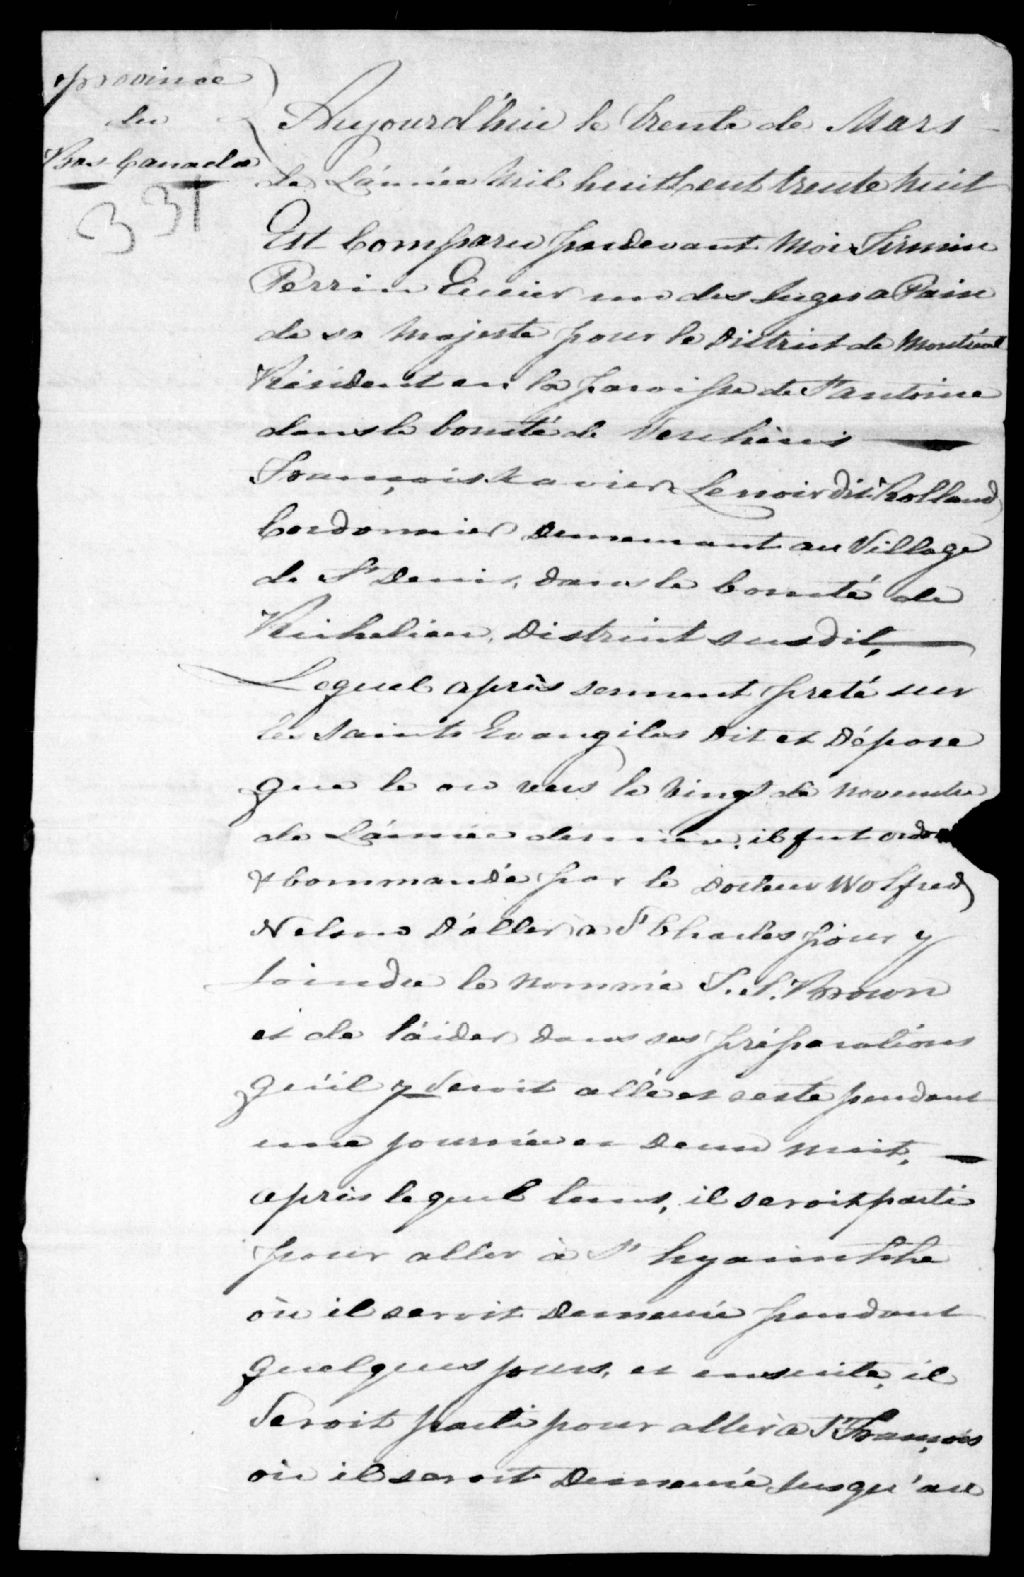 Province
du
Bas Canada
331
Aujourd'hui le trente de Mars
de L'année Mil huit Cent trente huit
Est Comparu pardevant Moi Firmin
Perrin Ecuier un des Juges a Paix
de sa Majesté pour le District de Montréal
Résident en la Paroisse de St antoine
dans le Comté de Verchères
François Xavier Lenoir dit Rolland
Cordonnier Demeurant au Village
de St Denis, dans le Comté de
Richelieu, District susdit,
Lequel après serment preté sur
les Saints Evangiles Dit et Dépose
que le ou vers le Vingt de Novembre
de L'année derniere, il fut
& Commandé par le Docteur Wolfred
Nelson D'aller a St Charles pour y
Joindre le nommé T. S. Brown
et de l'aider dans ses préparations
qu'il y Seroit allé et resté pendant
une journée et Deux nuit,
après lequel tems, il seroit parti
pour aller à St hyacinthe
où il seroit Demeuré pendant
quelques jours, et ensuite, il
Seroit parti pour aller a St François
où il seroit Demeuré Jusqu'au